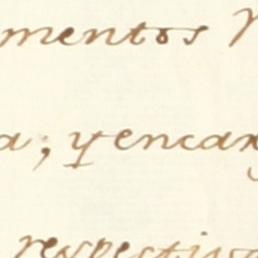 mentos
a; y encar
respectiv